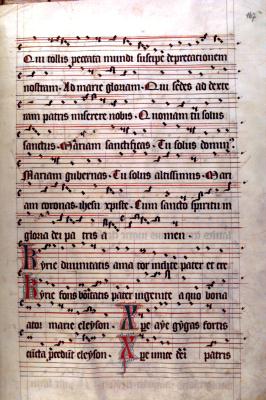 Qui tollis peccata mundi suscipe deprecationem
nostram. Ad marie gloriam. Qui sedes ad dexte
ram patris miserere nobis. Quoniam tu solus
sanctus. Mariam sanctificas. Tu solus domin⁹.
Mariam gubernas. Tu solus altissimus. Mari
am coronas. ihesu xpiste. Cum sancto spiritu in
gloria dei pa tris a men.
Kyrie divinitatis ama tor inclite pater et cre
Kyrie fons bonitatis pater ingenite a quo bona
ator marie eleyson. Xpe aye gygas fortis
cuncta eleyson. Xpe unice dei patris